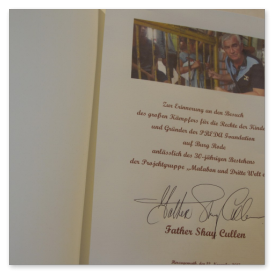 Zur Erinnerung an den Besuch
des großen Kämpfers für die Rechte der Kinder
und Gründer des PREDA Foundation
auf Burg Rode
anlässlich des 10-jährigen Bestehens
der Projektgruppe „Malaben und Dritte Welt
Father Shay Cullen
Father Shay Cullen
Herzogenrath